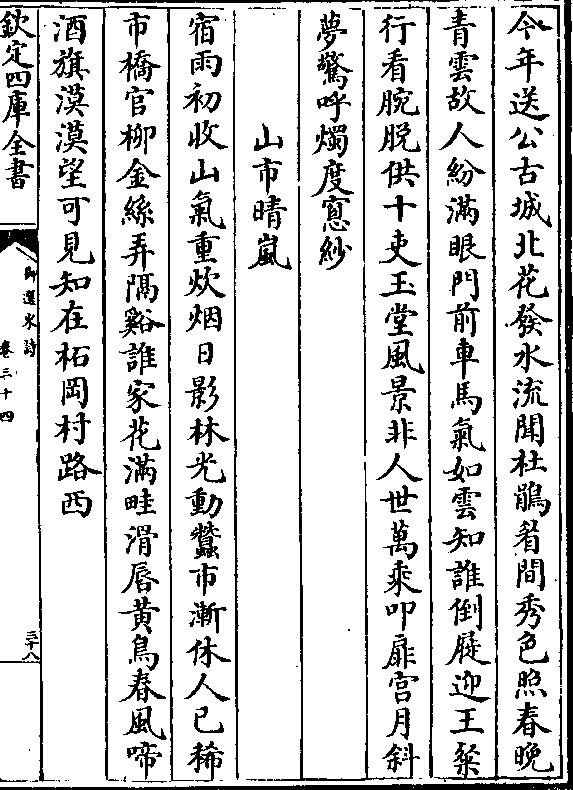 今年送公古城北花發水流聞杜鵑眉間秀色照春晚
青雲故人紛滿眼門前車馬氣如雲知誰倒屣迎王粲
行看腕脱供十吏玉堂風景非人世萬乘叩扉宫月斜
夢驚呼燭度窻紗
山市晴嵐
宿雨初收山氣重炊烟日影林光動蠶市漸休人已稀
市橋官柳金絲弄隔谿誰家花滿畦滑唇黄鳥春風啼
酒旗漠漠望可見知在柘岡村路西
欽定四庫全書
御選宋詩
卷三十四
三十八